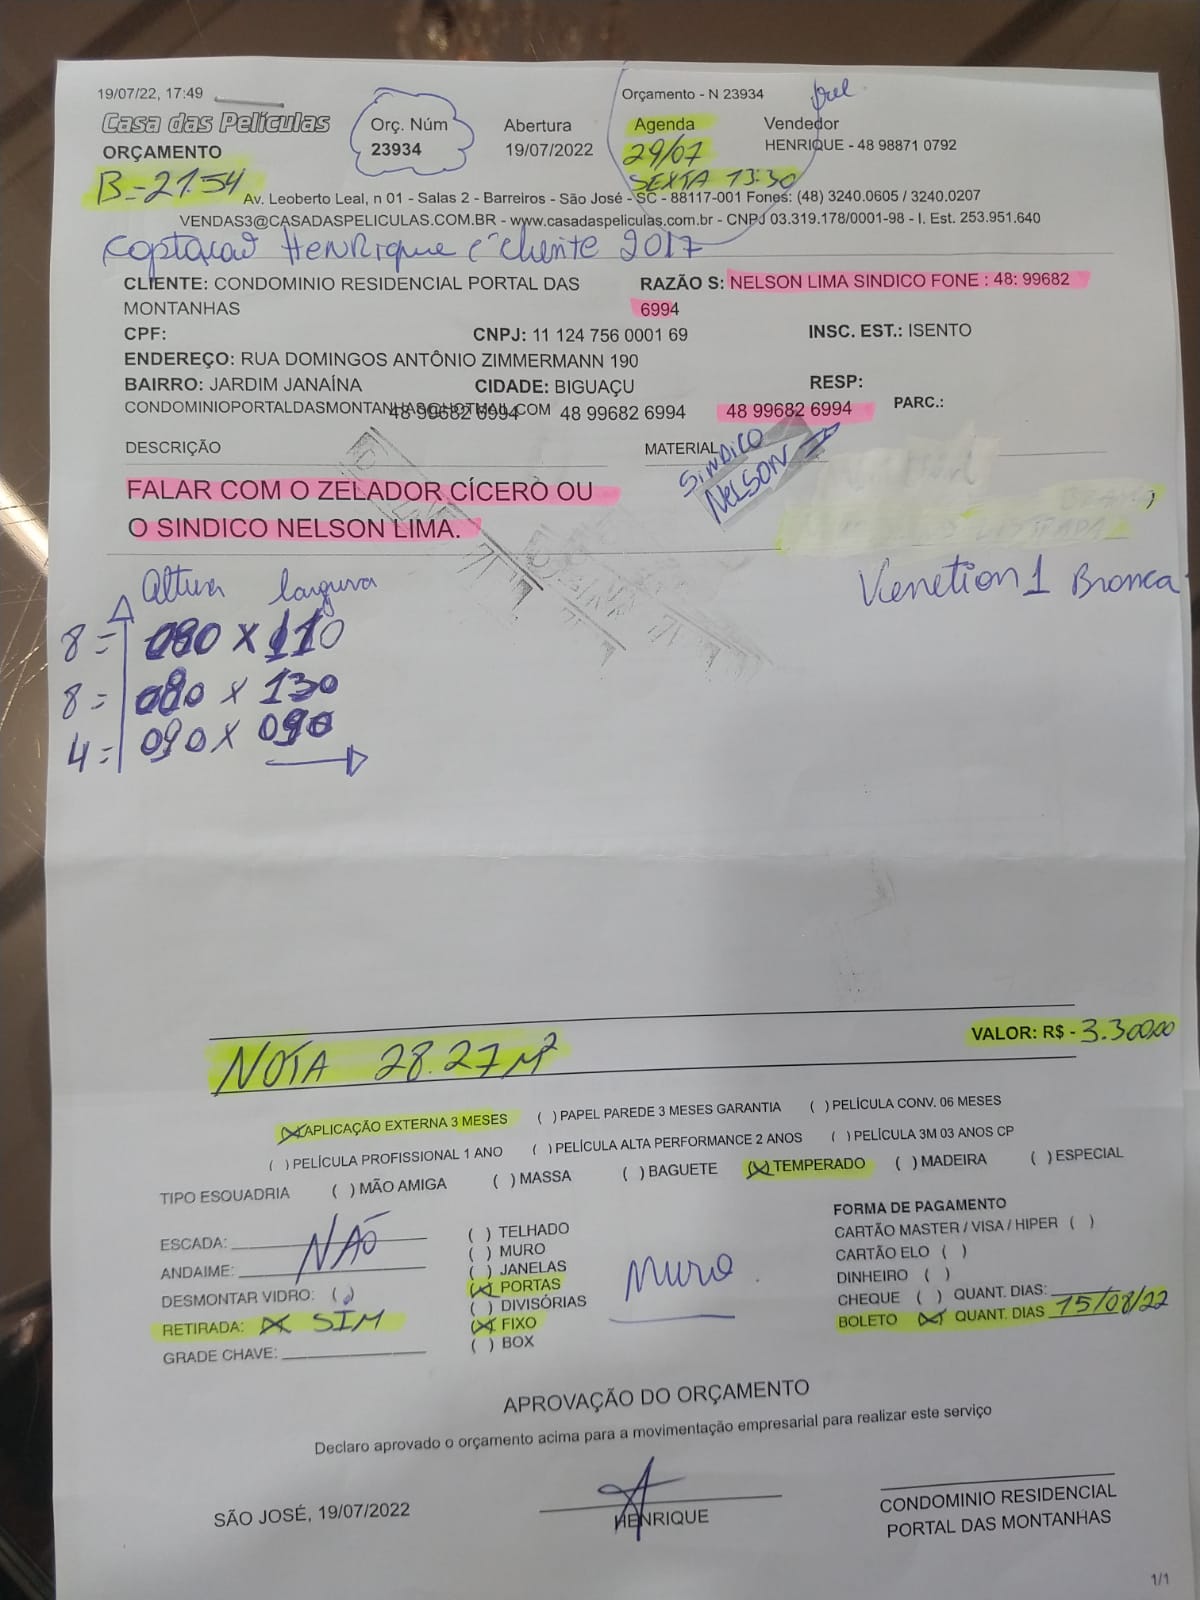 19/07/22, 17:49
Orçamento - N 23934
Casa das Películas
ORÇAMENTO
Orç. Núm
23934
Abertura
19/07/2022
Agenda
29/07
SEXTA 13:30
Vendedor
HENRIQUE - 48 98871 0792
B-21.54
Av. Leoberto Leal, n 01 - Salas 2 - Barreiros - São José - SC - 88117-001 Fones: (48) 3240.0605 / 3240.0207
VENDAS3@CASADASPELICULAS.COM.BR - www.casadaspeliculas.com.br - CNPJ 03.319.178/0001-98 - I. Est. 253.951.640
Henrique cliente 2017
CLIENTE: CONDOMINIO RESIDENCIAL PORTAL DAS
MONTANHAS
RAZÃO S: NELSON LIMA SINDICO FONE : 48: 99682
6994
CPF: CNPJ: 11 124 756 0001 69 INSC. EST.: ISENTO
ENDEREÇO: RUA DOMINGOS ANTÔNIO ZIMMERMANN 190
BAIRRO: JARDIM JANAÍNA CIDADE: BIGUAÇU RESP:
CONDOMINIOPORTALDASMONTANHAS@HOTMAIL.COM 48 99682 6994 48 99682 6994 48 99682 6994 PARC.:
DESCRIÇÃO MATERIAL
SINDICO
NELSON
FALAR COM O ZELADOR CÍCERO OU
O SINDICO NELSON LIMA.
Altura largura
8= 080 x 110
8= 080 x 130
4= 090 x 090
Venetion 1 Bronca
NOTA 28.27 M²
VALOR: R$ - 3.300,00
(X) APLICAÇÃO EXTERNA 3 MESES ( ) PAPEL PAREDE 3 MESES GARANTIA ( ) PELÍCULA CONV. 06 MESES
( ) PELÍCULA PROFISSIONAL 1 ANO ( ) PELÍCULA ALTA PERFORMANCE 2 ANOS ( ) PELÍCULA 3M 03 ANOS CP
TIPO ESQUADRIA ( ) MÃO AMIGA ( ) MASSA ( ) BAGUETE (X) TEMPERADO ( ) MADEIRA ( ) ESPECIAL
ESCADA:
ANDAIME:
NÃO
DESMONTAR VIDRO: ( )
RETIRADA: X SIM
GRADE CHAVE:
( ) TELHADO
( ) MURO
( ) JANELAS
(X) PORTAS
( ) DIVISÓRIAS
(X) FIXO
( ) BOX
Muro
FORMA DE PAGAMENTO
CARTÃO MASTER / VISA / HIPER ( )
CARTÃO ELO ( )
DINHEIRO ( )
CHEQUE ( ) QUANT. DIAS:
BOLETO (X) QUANT. DIAS 15/08/22
APROVAÇÃO DO ORÇAMENTO
Declaro aprovado o orçamento acima para a movimentação empresarial para realizar este serviço
SÃO JOSÉ, 19/07/2022
HENRIQUE
CONDOMINIO RESIDENCIAL
PORTAL DAS MONTANHAS
1/1